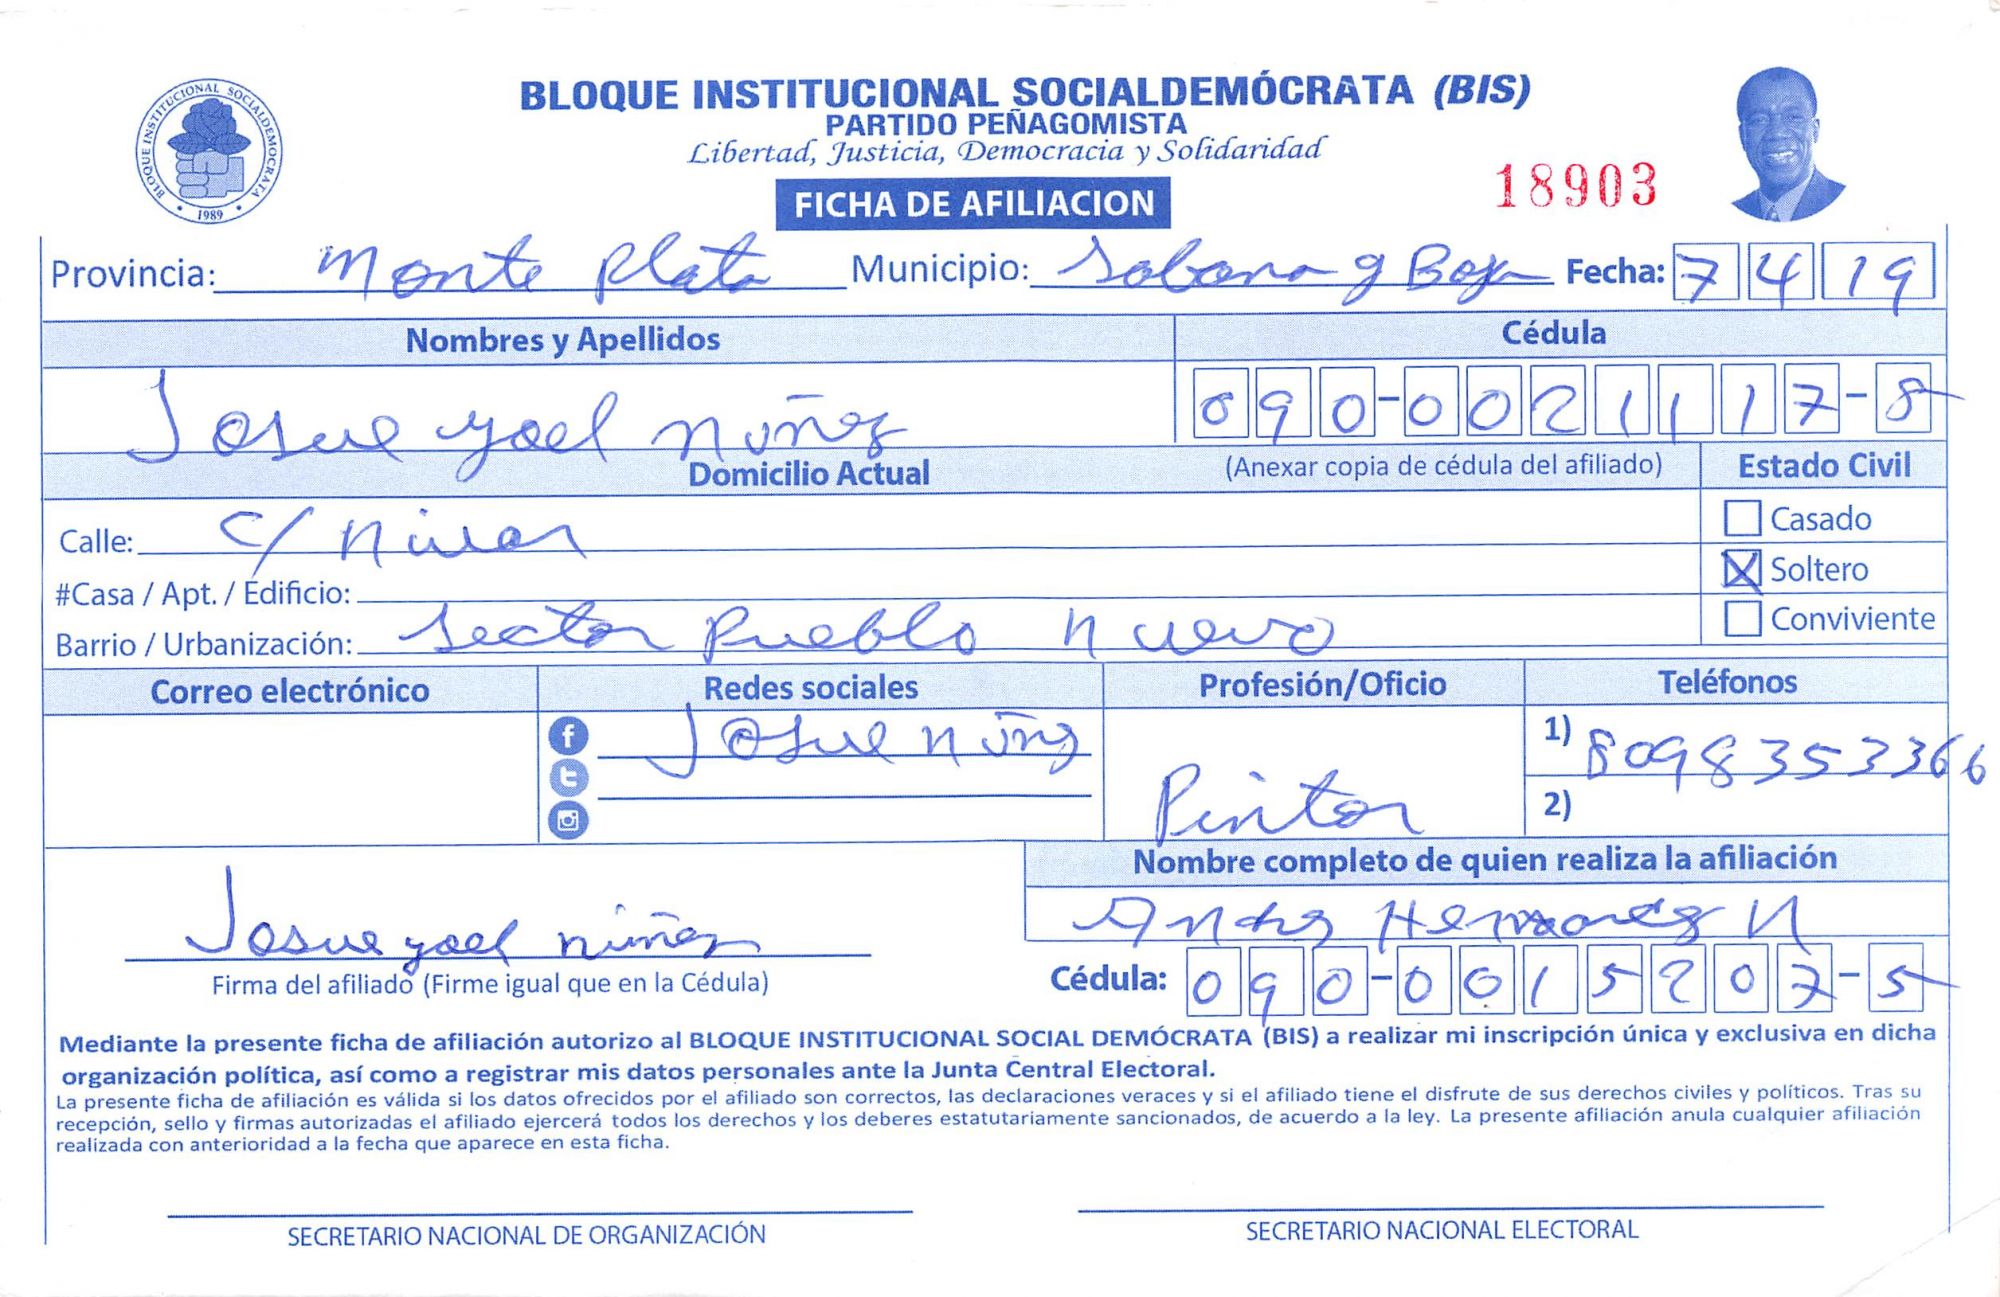 BLOQUE INSTITUCIONAL SOCIALDEMOCRATA
1989
BLOQUE INSTITUCIONAL SOCIALDEMÓCRATA (BIS)
PARTIDO PEÑAGOMISTA
Libertad, Justicia, Democracia y Solidaridad
18903
FICHA DE AFILIACION
Provincia: Monte Plata Municipio: Sabana g Boya Fecha: 7 4 19
Nombres y Apellidos Cédula
Josue yoel núñez 090-0021117-8
Domicilio Actual (Anexar copia de cédula del afiliado) Estado Civil
Calle: C/ Casado
#Casa / Apt. / Edificio: Soltero
Barrio / Urbanización: Sector Pueblo nuevo Conviviente
Correo electrónico Redes sociales Profesión/Oficio Teléfonos
Josue núñz Pintor 1) 8098353366
2)
Nombre completo de quien realiza la afiliación
Josue yoel núñez Hernandez N
Firma del afiliado (Firme igual que en la Cédula) Cédula: 090-0015207-5
Mediante la presente ficha de afiliación autorizo al BLOQUE INSTITUCIONAL SOCIAL DEMÓCRATA (BIS) a realizar mi inscripción única y exclusiva en dicha
organización política, así como a registrar mis datos personales ante la Junta Central Electoral.
La presente ficha de afiliación es válida si los datos ofrecidos por el afiliado son correctos, las declaraciones veraces y si el afiliado tiene el disfrute de sus derechos civiles y políticos. Tras su
recepción, sello y firmas autorizadas el afiliado ejercerá todos los derechos y los deberes estatutariamente sancionados, de acuerdo a la ley. La presente afiliación anula cualquier afiliación
realizada con anterioridad a la fecha que aparece en esta ficha.
SECRETARIO NACIONAL DE ORGANIZACIÓN SECRETARIO NACIONAL ELECTORAL